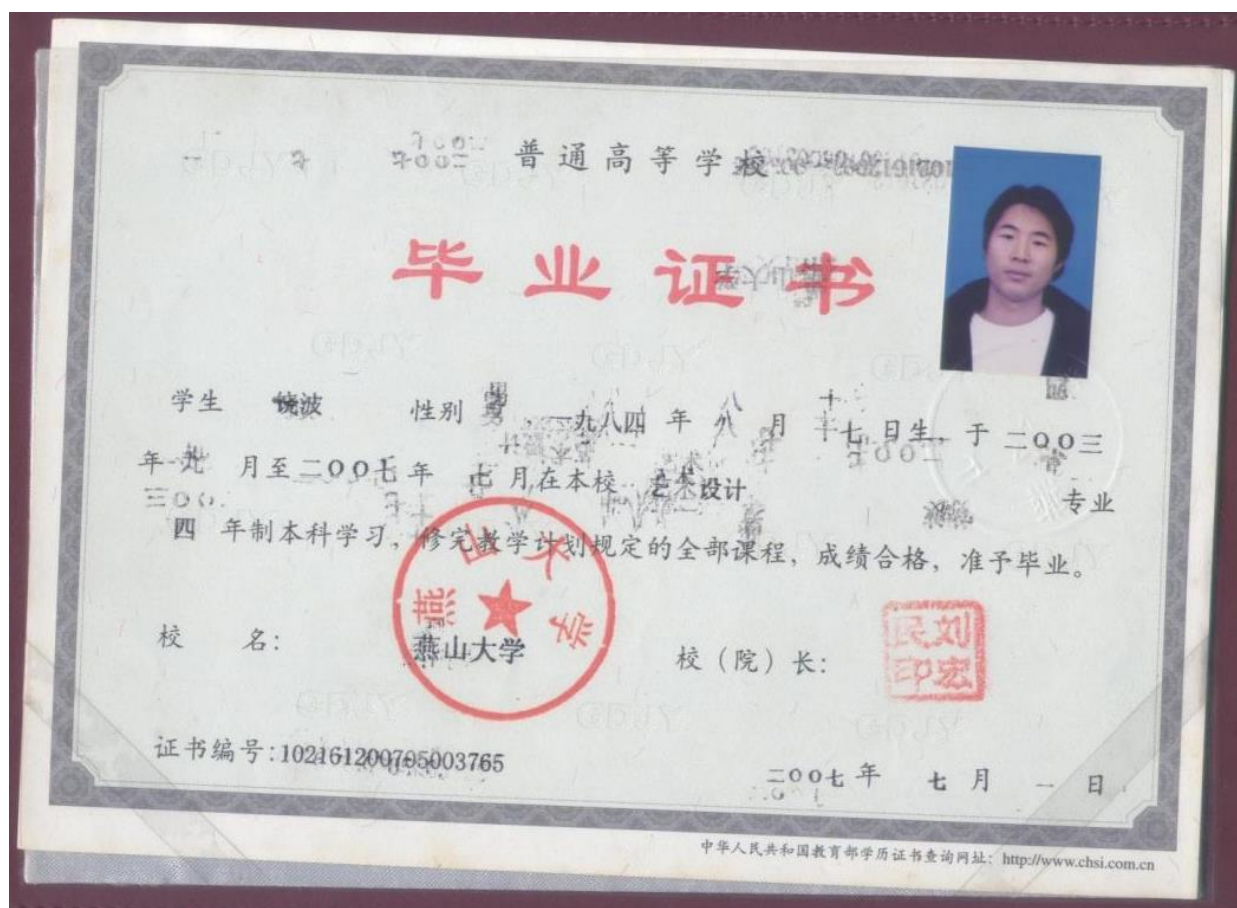 普通高等学校
毕业证书
学生 饶波 性别 男，一九八四年 八 月 十七 日生，于 二00三
年 九 月至 二00七 年 七 月在本校 艺术设计 专业
四 年制本科学习，修完教学计划规定的全部课程，成绩合格，准予毕业。
校 名： 燕山大学 校（院）长：
燕山大学
刘宏民印
证书编号：102161200705003765
二00七 年 七 月 一 日
中华人民共和国教育部学历证书查询网址：http://www.chsi.com.cn